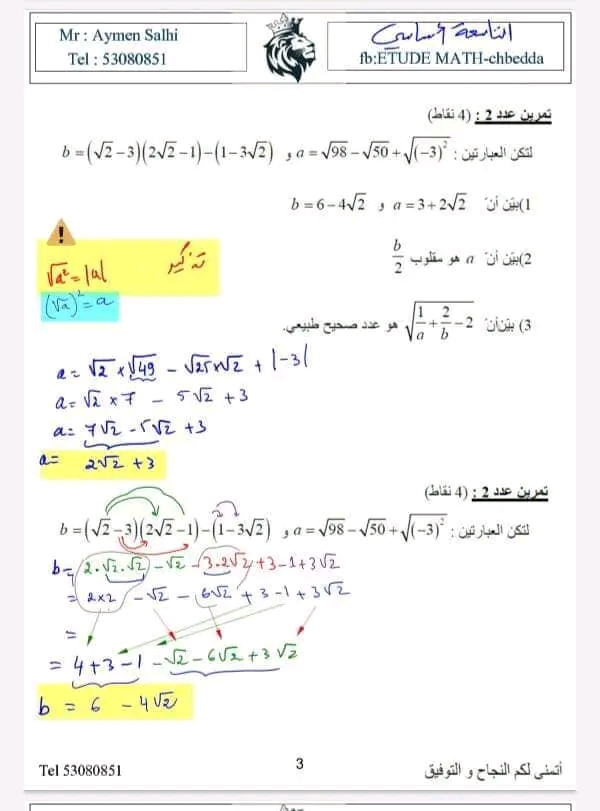 Mr : Aymen Salhi
Tel : 53080851
التاسعة أساسي
fb:ETUDE MATH-chbedda
تمرين عدد 2 : (4 نقاط)
لتكن العبارتين : a = √98 − √50 + √(−3)² و b = (√2 − 3)(2√2 − 1) − (1 − 3√2)
1)بيّن أنّ a = 3 + 2√2 و b = 6 − 4√2
2)بيّن أنّ a هو مقلوب b/2
3) بيّن أنّ √(1/a + 2/b − 2) هو عدد صحيح طبيعي.
تذكير
√a² = |a|
(√a)² = a
a = √2 × √49 − √25×√2 + |−3|
a = √2 × 7 − 5√2 + 3
a = 7√2 − 5√2 + 3
a = 2√2 + 3
تمرين عدد 2 : (4 نقاط)
لتكن العبارتين : a = √98 − √50 + √(−3)² و b = (√2 − 3)(2√2 − 1) − (1 − 3√2)
b = 2.√2.√2 − √2 − 3.2√2 + 3 − 1 + 3√2
= 2×2 − √2 − 6√2 + 3 − 1 + 3√2
=
= 4 + 3 − 1 − √2 − 6√2 + 3√2
b = 6 − 4√2
Tel 53080851
3
أتمنى لكم النجاح و التوفيق